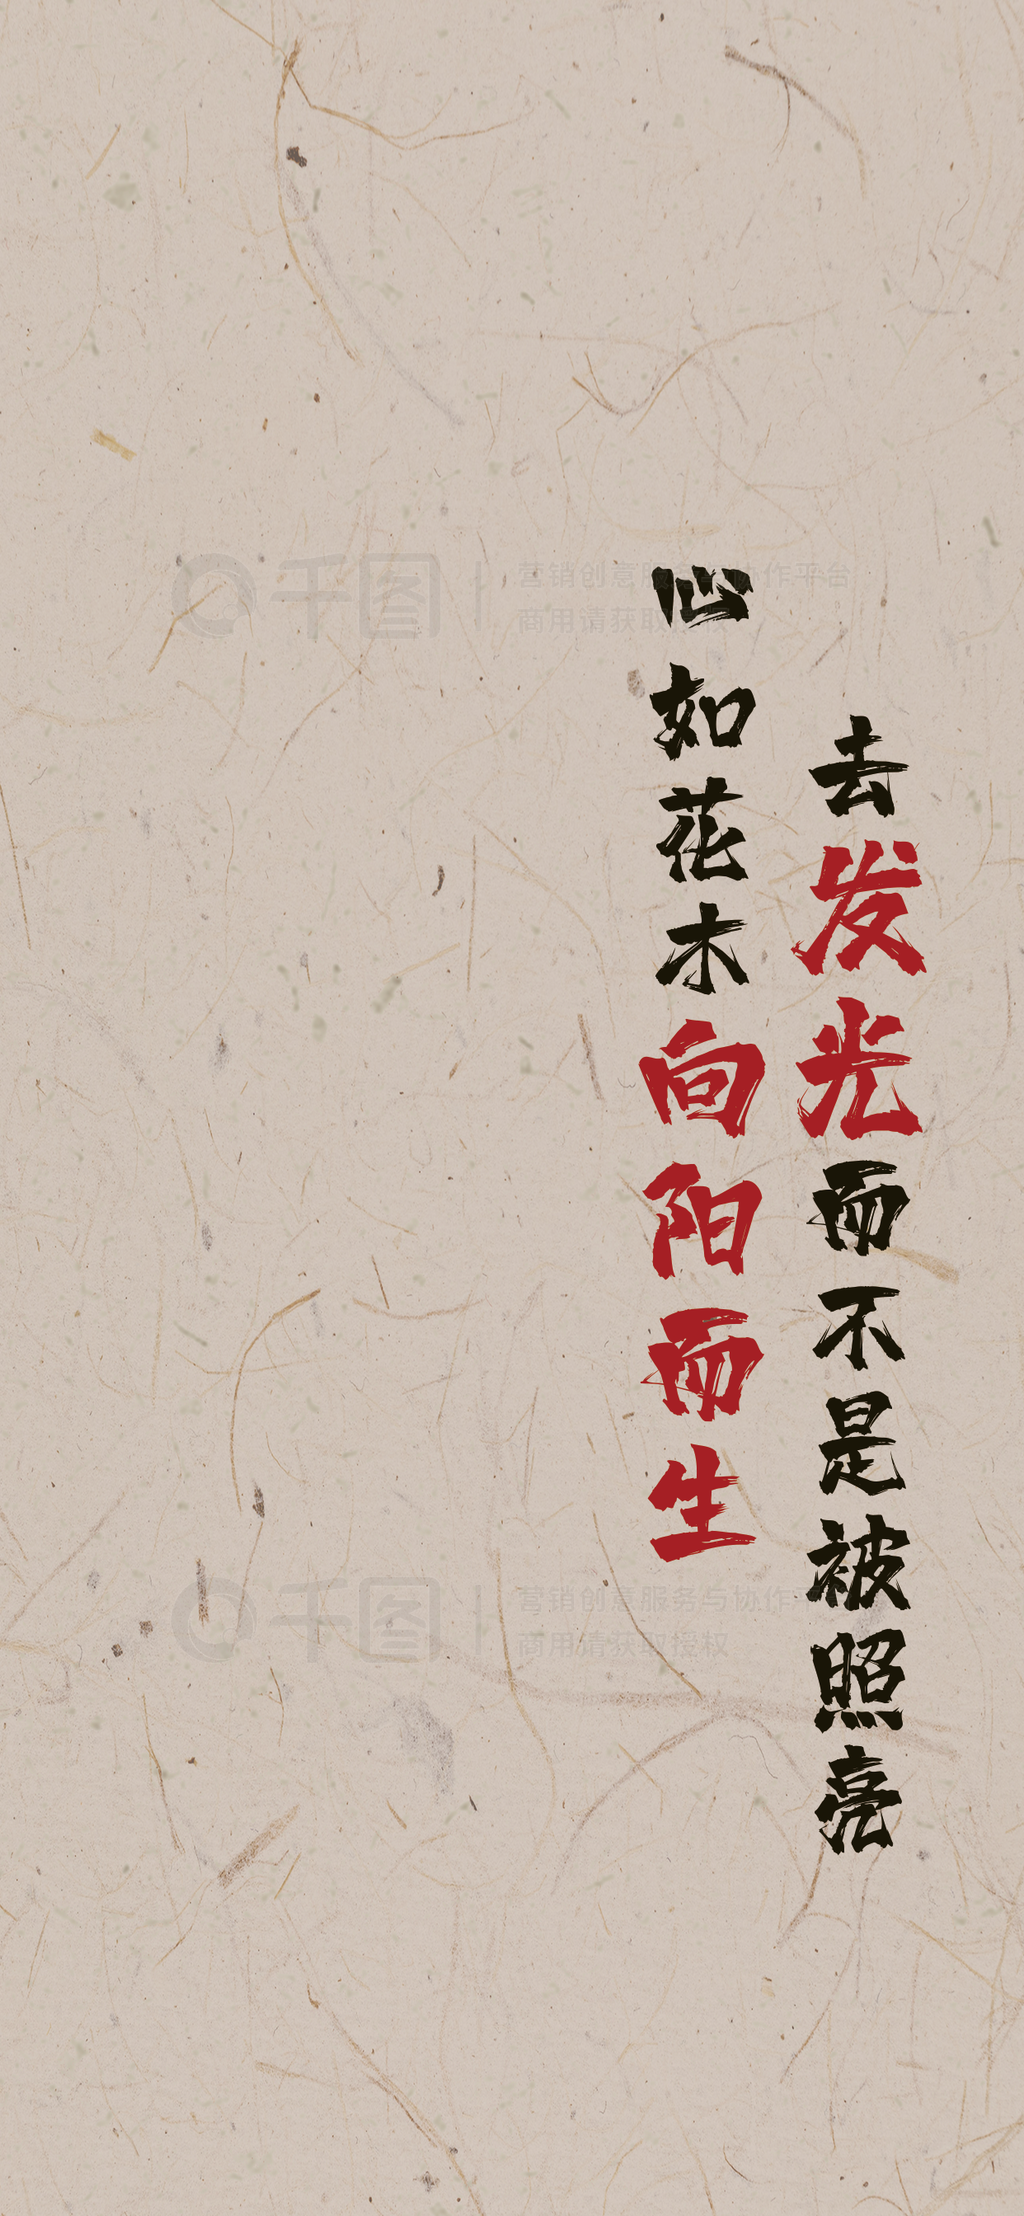 去发光而不是被照亮
心如花木向阳而生
千图
营销创意服务与协作平台
商用请获取授权
千图
营销创意服务与协作平台
商用请获取授权